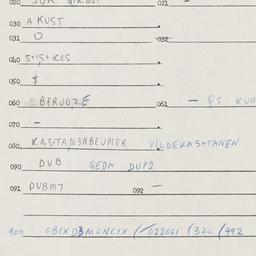 020
021 -
030 A KUST
031 O 032
040 S+|S+ICES
050 $
060 BERUORE 061 - QS KUR
070 -
080 KASTAN3NBEUMER VILDEKAS+TANEN
090 DVB GEDN DUP2
091 DVBM7 092 -
900 OBIXD3MONCIX (022061 (320 (492